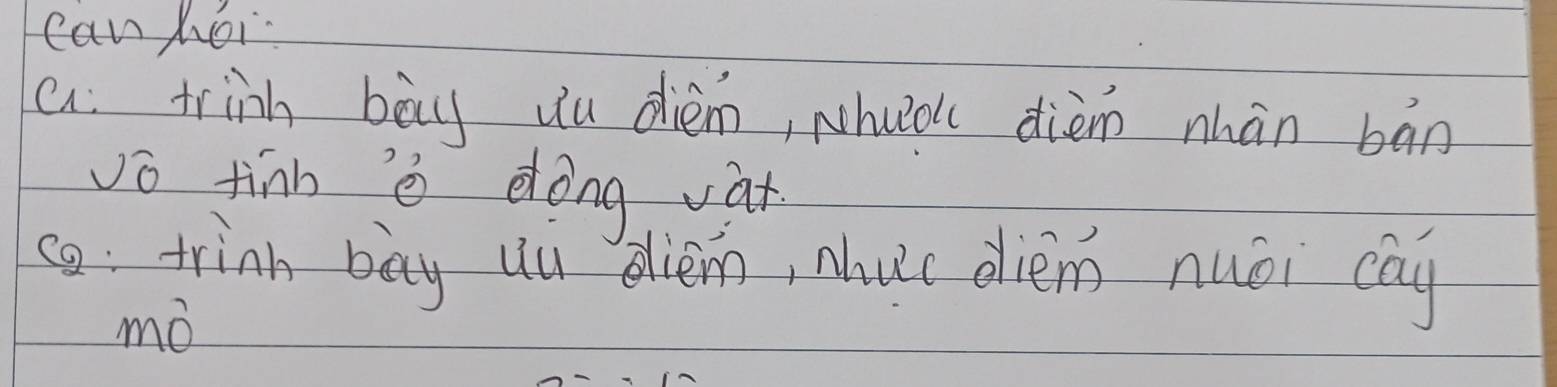 câu hỏi:
C1: trình bày ưu điểm, Nhược điểm nhân bản
vô tính ở động vật.
C2: trình bày ưu điểm, nhực điểm nuôi cấy
mô